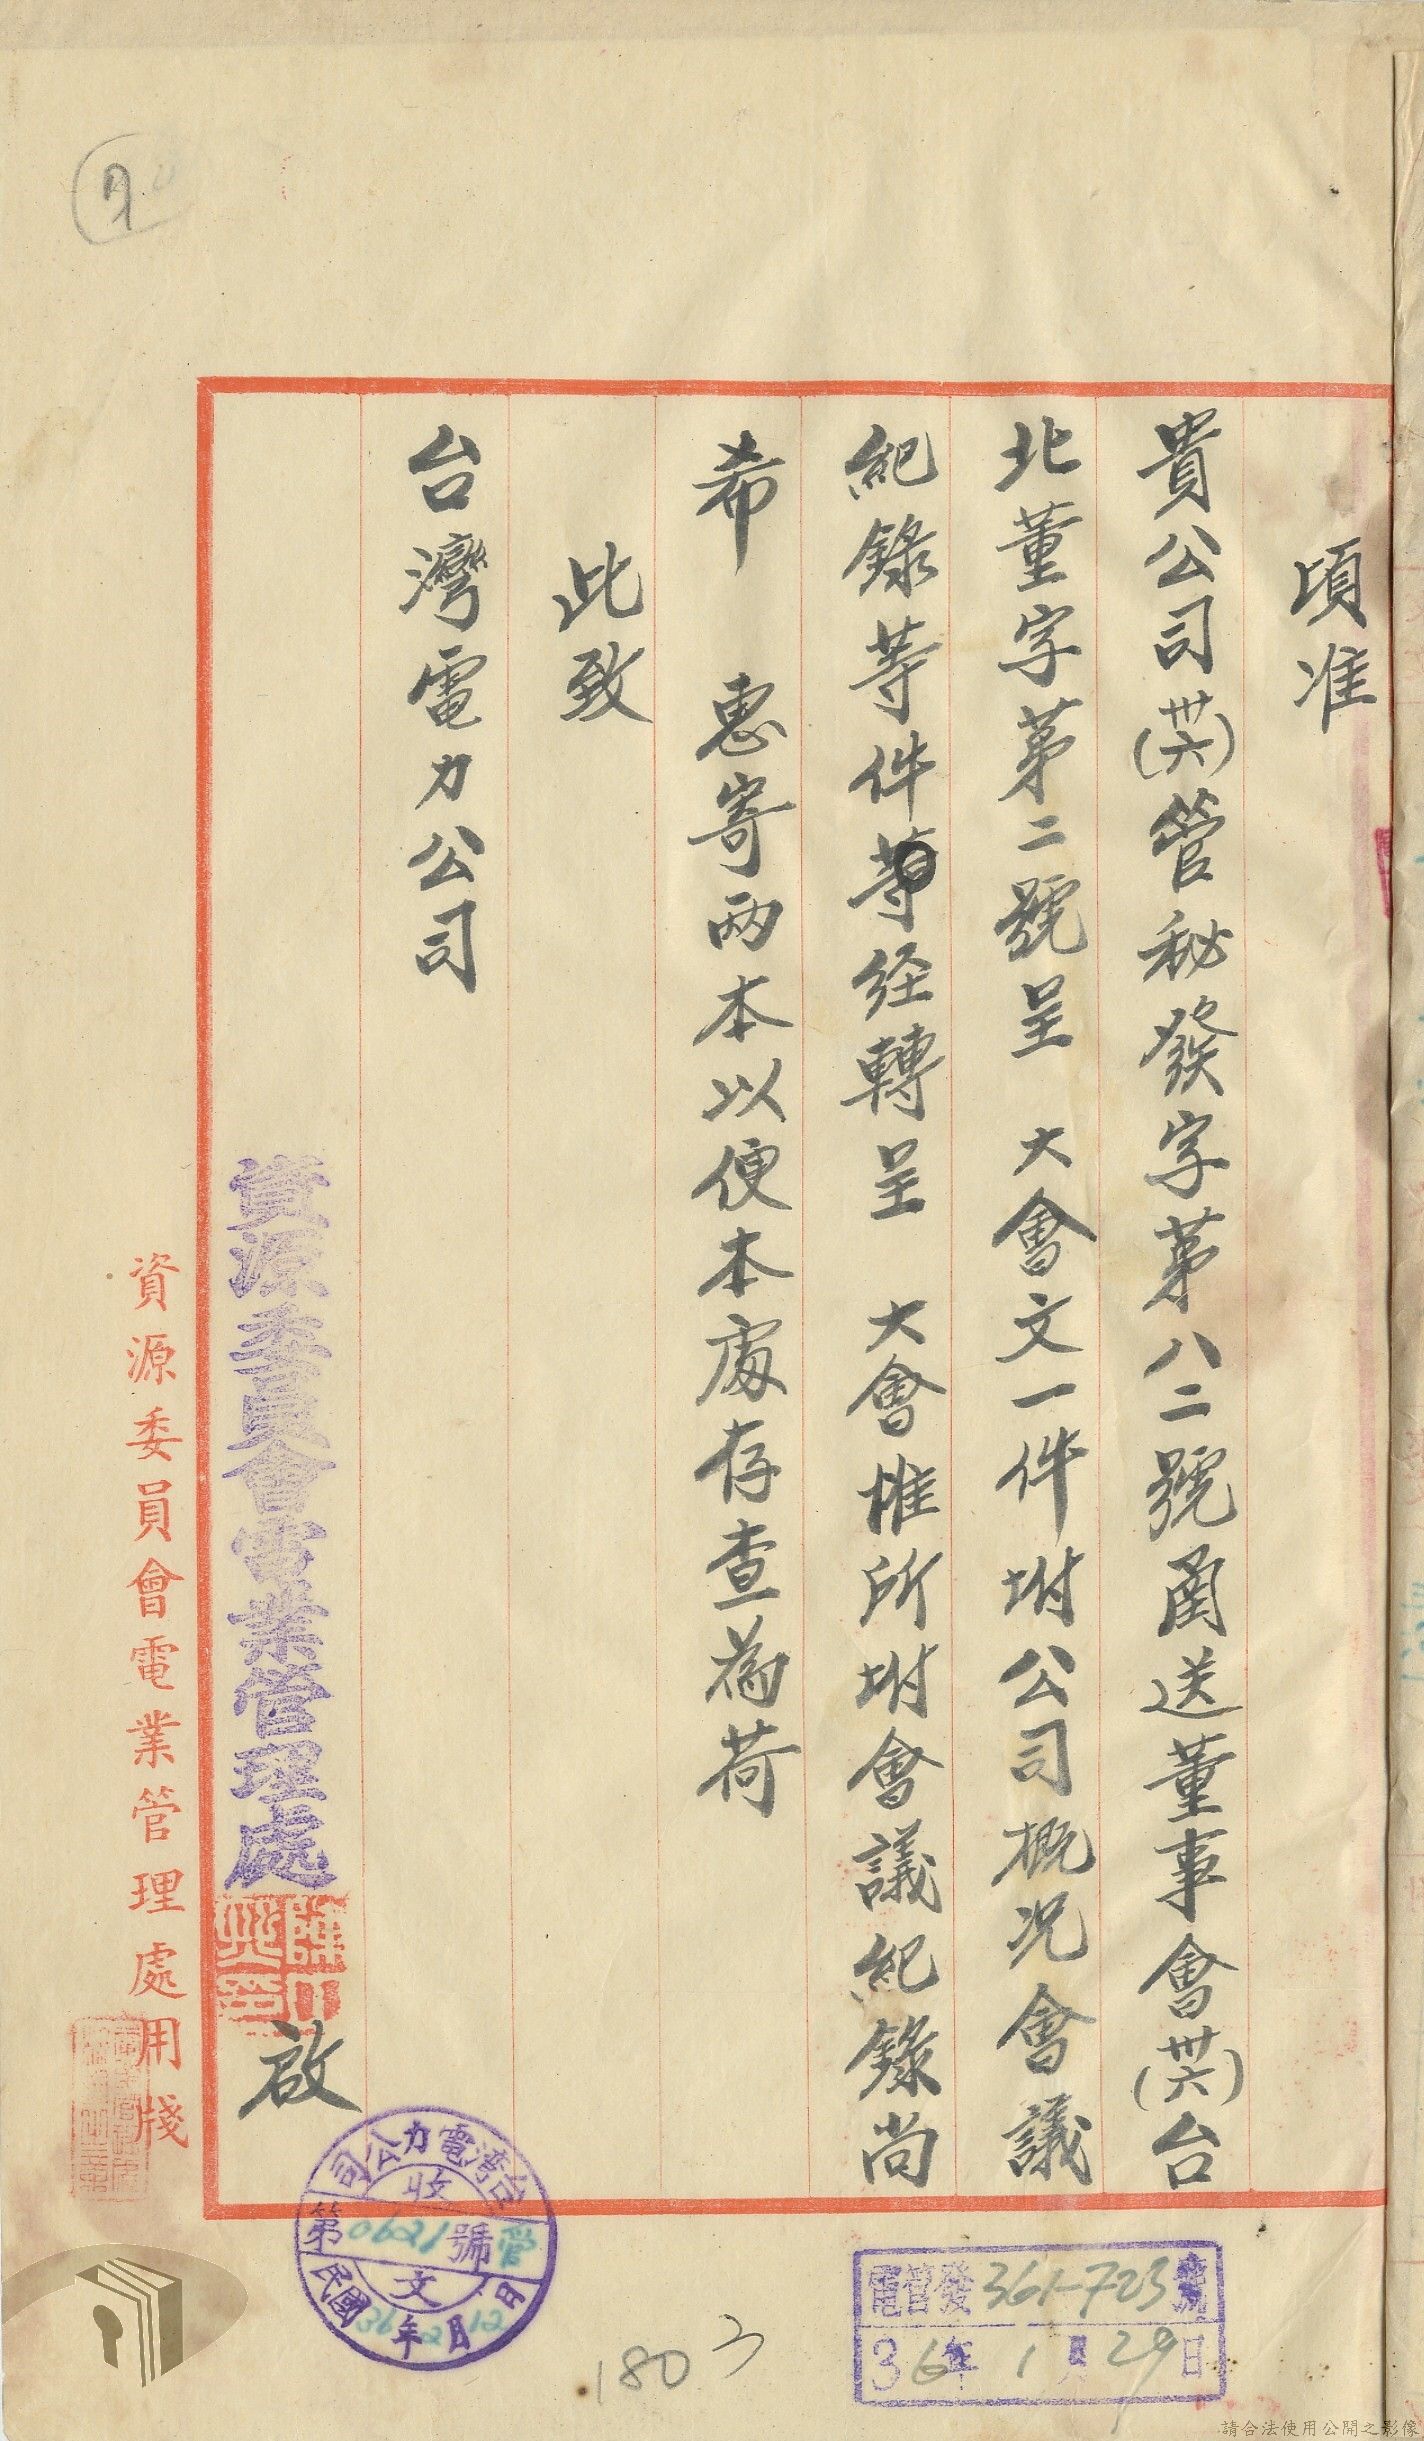 頃准
貴公司(卅六)管秘發字第八二號函送董事會(卅六)台
北董字第二號呈　大會文一件坿公司概況會議
紀錄等件等經轉呈　大會惟所坿會議紀錄尚
希　惠寄两本以便本處存查為荷
此致
台灣電力公司
資源委員會電業管理處
啟
資源委員會電業管理處用牋
台灣電力公司
收
第0621號 管
文
民國36年2月12日
電管發361-723號
36年1月29日
1803
請合法使用公開之影像